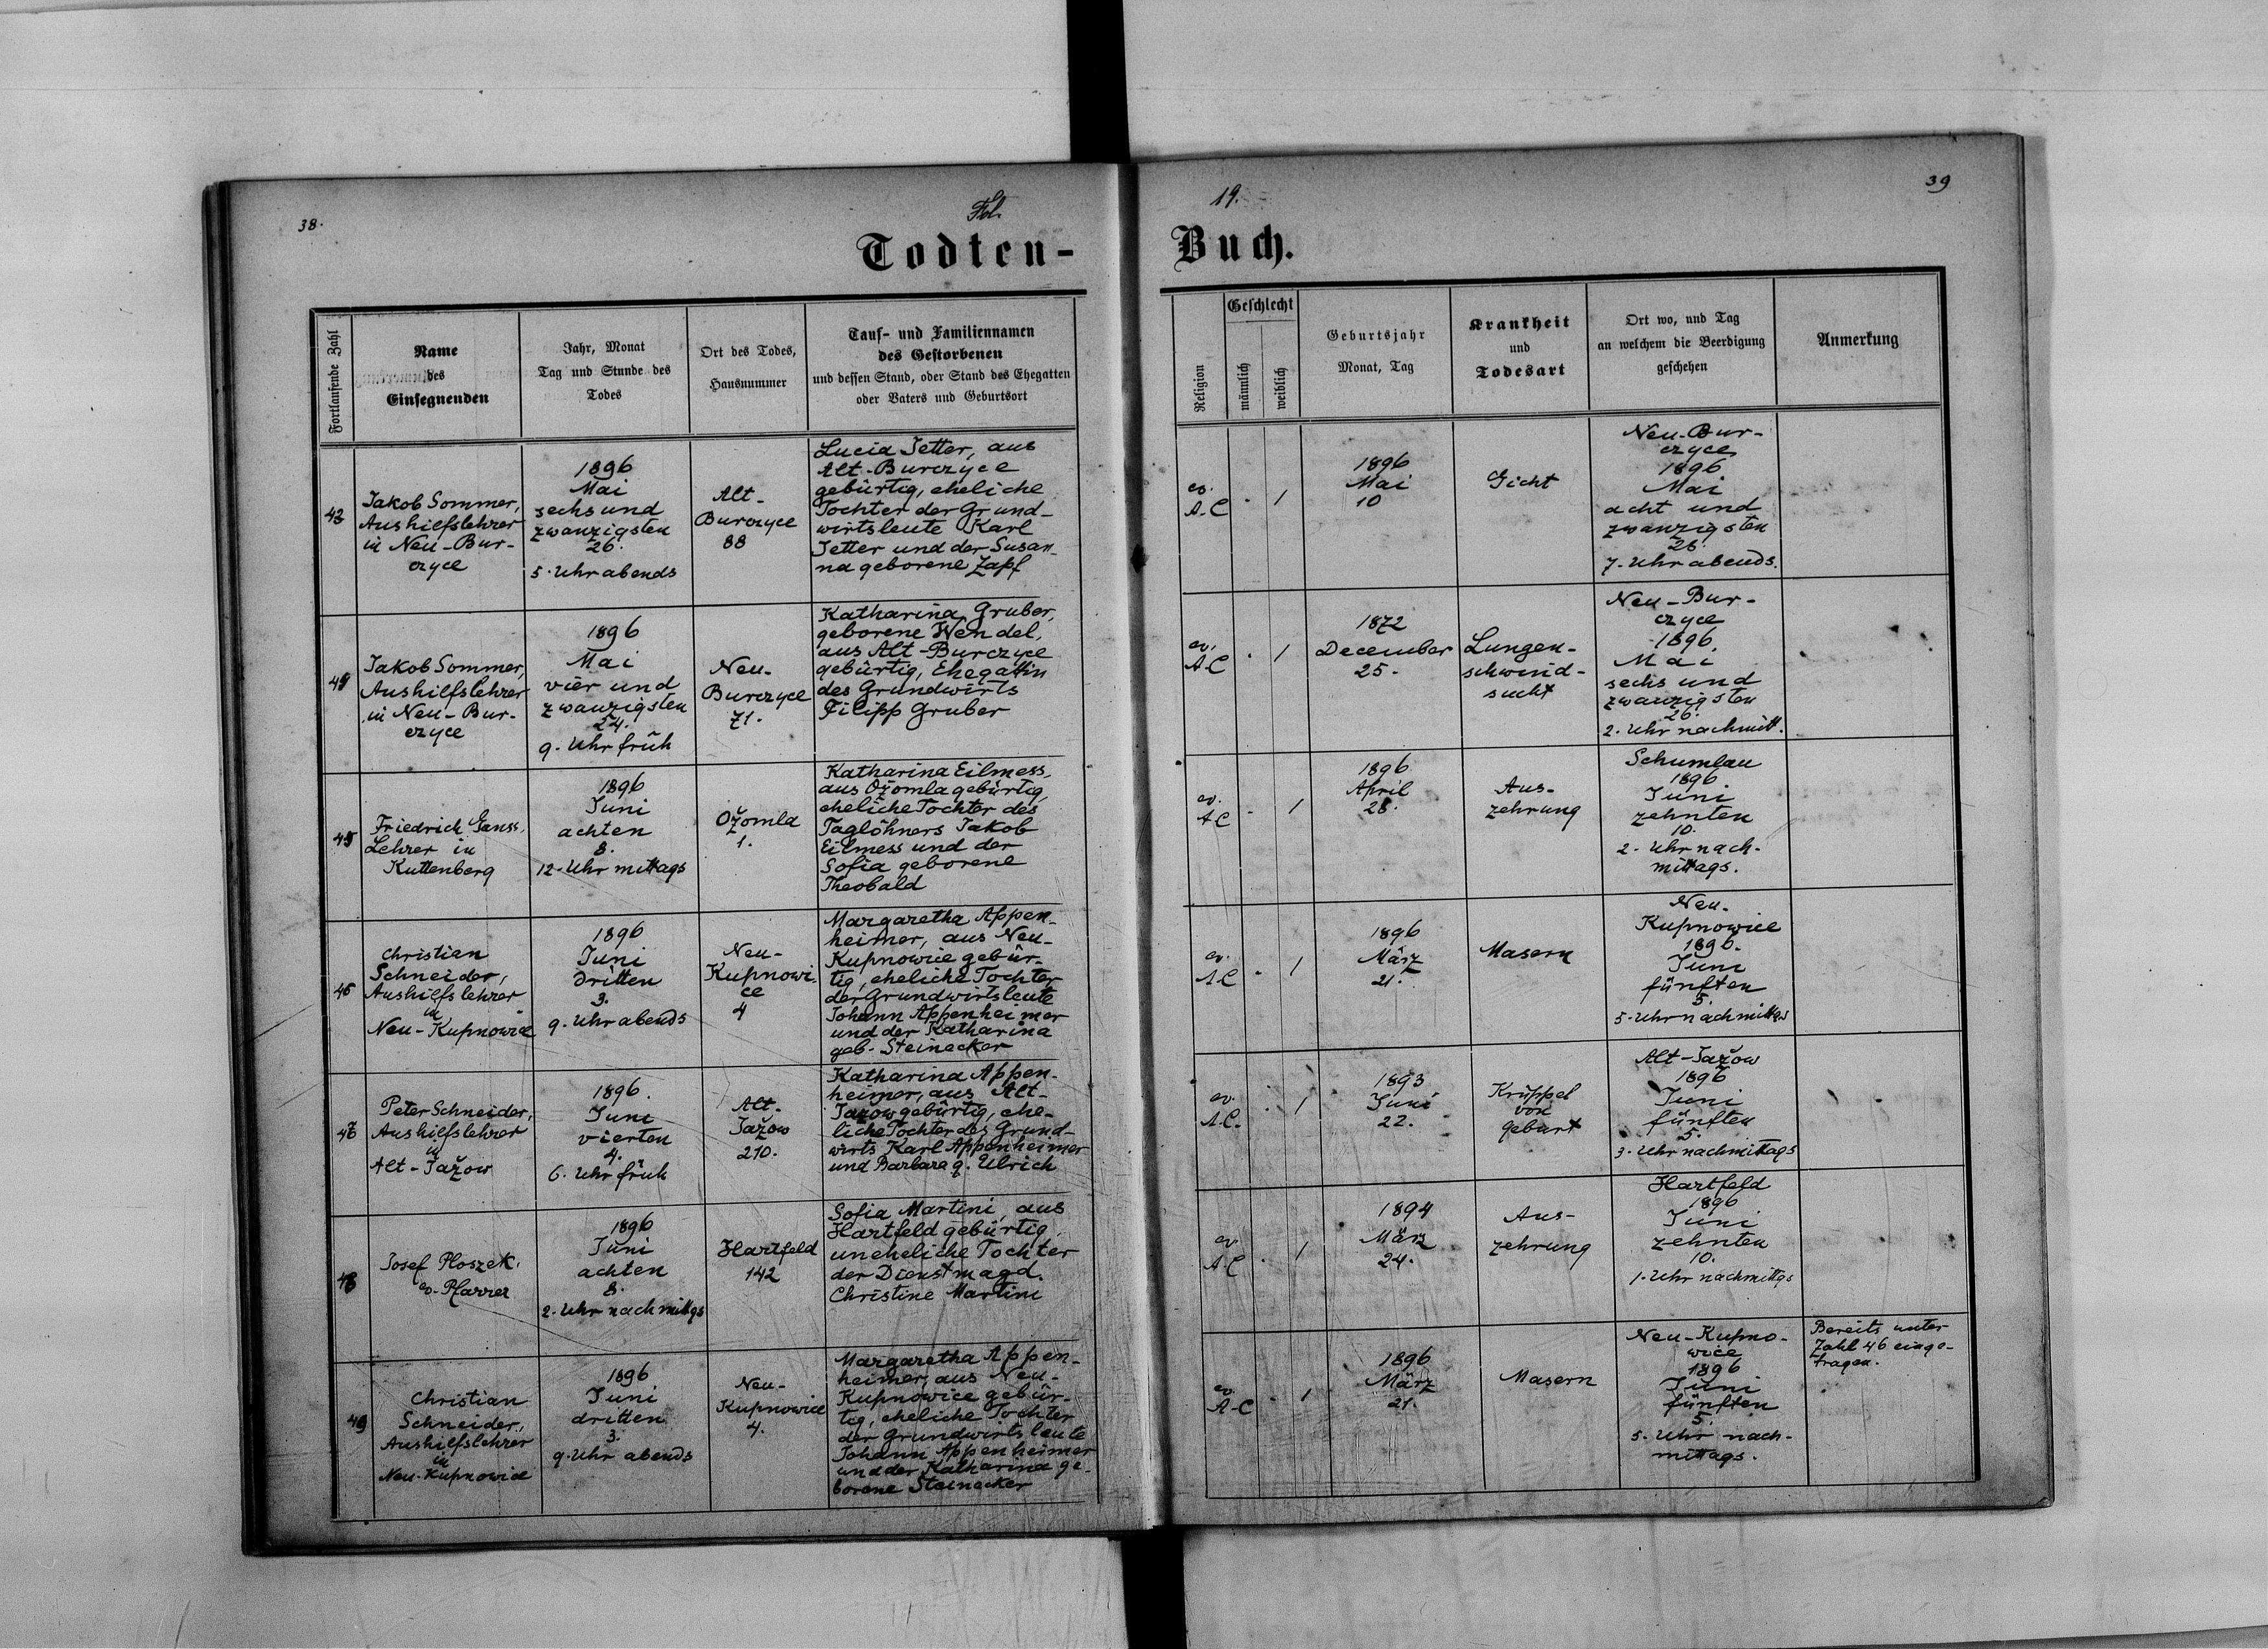 38.
Fol.
Todten-
Fortlaufende Zahl
Name
des
Einsegnenden
Jahr, Monat
Tag und Stunde des
Todes
Ort des Todes,
Hausnummer
Tauf- und Familiennamen
des Gestorbenen
und dessen Stand, oder Stand des Ehegatten
oder Vaters und Geburtsort
43
Jakob Sommer,
Aushilfslehrer
in Neu-Bur-
czyce
1896
Mai
sechs und
zwanzigsten
26.
5. Uhr abends
Alt-
Burczyce
88
Lucia Jetter, aus
Alt-Burczyce
gebürtig, eheliche
Tochter der Grund-
wirtsleute Karl
Jetter und der Susan-
na geborene Zapf
44
Jakob Sommer,
Aushilfslehrer
in Neu-Bur-
czyce
1896
Mai
vier und
zwanzigsten
24.
9. Uhr früh
Neu-
Burczyce
71.
Katharina Gruber,
geborene Wendel,
aus Alt-Burczyce
gebürtig, Ehegattin
des Grundwirts
Filipp Gruber
45
Friedrich Ganss,
Lehrer in
Kuttenberg
1896
Juni
achten
8.
12. Uhr mittags
Ožomla
1.
Katharina Eilmess,
aus Ožomla gebürtig,
eheliche Tochter des
Taglöhners Jakob
Eilmess und der
Sofia geborene
Theobald
46
Christian
Schneider,
Aushilfslehrer
in
Neu-Kupnowice
1896
Juni
dritten
3.
9. Uhr abends
Neu-
Kupnowi-
ce
4
Margaretha Appen-
heimer, aus Neu-
Kupnowice gebür-
tig, eheliche Tochter
der Grundwirtsleute
Johann Appenheimer
und der Katharina
geb. Steinacker
47
Peter Schneider,
Aushilfslehrer
in
Alt-Jažow
1896.
Juni
vierten
4.
6. Uhr früh
Alt-
Jažow
210.
Katharina Appen-
heimer, aus Alt-
Jazow gebürtig, ehe-
liche Tochter des Grund-
wirts Karl Appenheimer
und Barbara g. Ulrich
48
Josef Ploszek,
ev. Pfarrer
1896
Juni
achten
8.
2. Uhr nachmittgs
Hartfeld
142
Sofia Martini, aus
Hartfeld gebürtig,
uneheliche Tochter
der Dienstmagd
Christine Martini
49
Christian
Schneider,
Aushilfslehrer
in
Neu-Kupnowice
1896
Juni
dritten
3.
9. Uhr abends
Neu-
Kupnowice
4.
Margaretha Appen-
heimer, aus Neu-
Kupnowice gebür-
tig, eheliche Tochter
der Grundwirtsleute
Johann Appenheimer
und der Katharina ge-
borene Steinacker
19.
39
Buch.
Religion
Geschlecht
männlich
weiblich
Geburtsjahr
Monat, Tag
Krankheit
und
Todesart
Ort wo, und Tag
an welchem die Beerdigung
geschehen
Anmerkung
ev.
A.C
1
1896
Mai
10
Gicht
Neu-Bur-
czyce
1896
Mai
acht und
zwanzigsten
28.
7. Uhr abends.
ev.
A.C
1
1872
December
25.
Lungen-
schwind-
sucht
Neu-Bur-
czyce
1896.
Mai
sechs und
zwanzigsten
26.
2. Uhr nachmitt.
ev.
A C
1
1896
April
28.
Aus-
zehrung
Schumlau
1896
Juni
zehnten
10.
2. Uhr nach-
mittags.
ev.
A C
1
1896
März
21.
Masern
Neu-
Kupnowice
1896.
Juni
fünften
5.
5. Uhr nachmittgs
ev.
A.C.
1
1893
Juni
22.
Krüppel
von
Geburt
Alt-Jažow
1896
Juni
fünften
5.
3. Uhr nachmittags
ev.
A.C
1
1894
März
24.
Aus-
zehrung
Hartfeld
1896
Juni
zehnten
10.
1. Uhr nachmittgs
ev.
A-C
1
1896
März
21.
Masern
Neu-Kupno-
wice
1896
Juni
fünften
5.
5. Uhr nach-
mittags.
Bereits unter
Zahl 46 einge-
tragen.